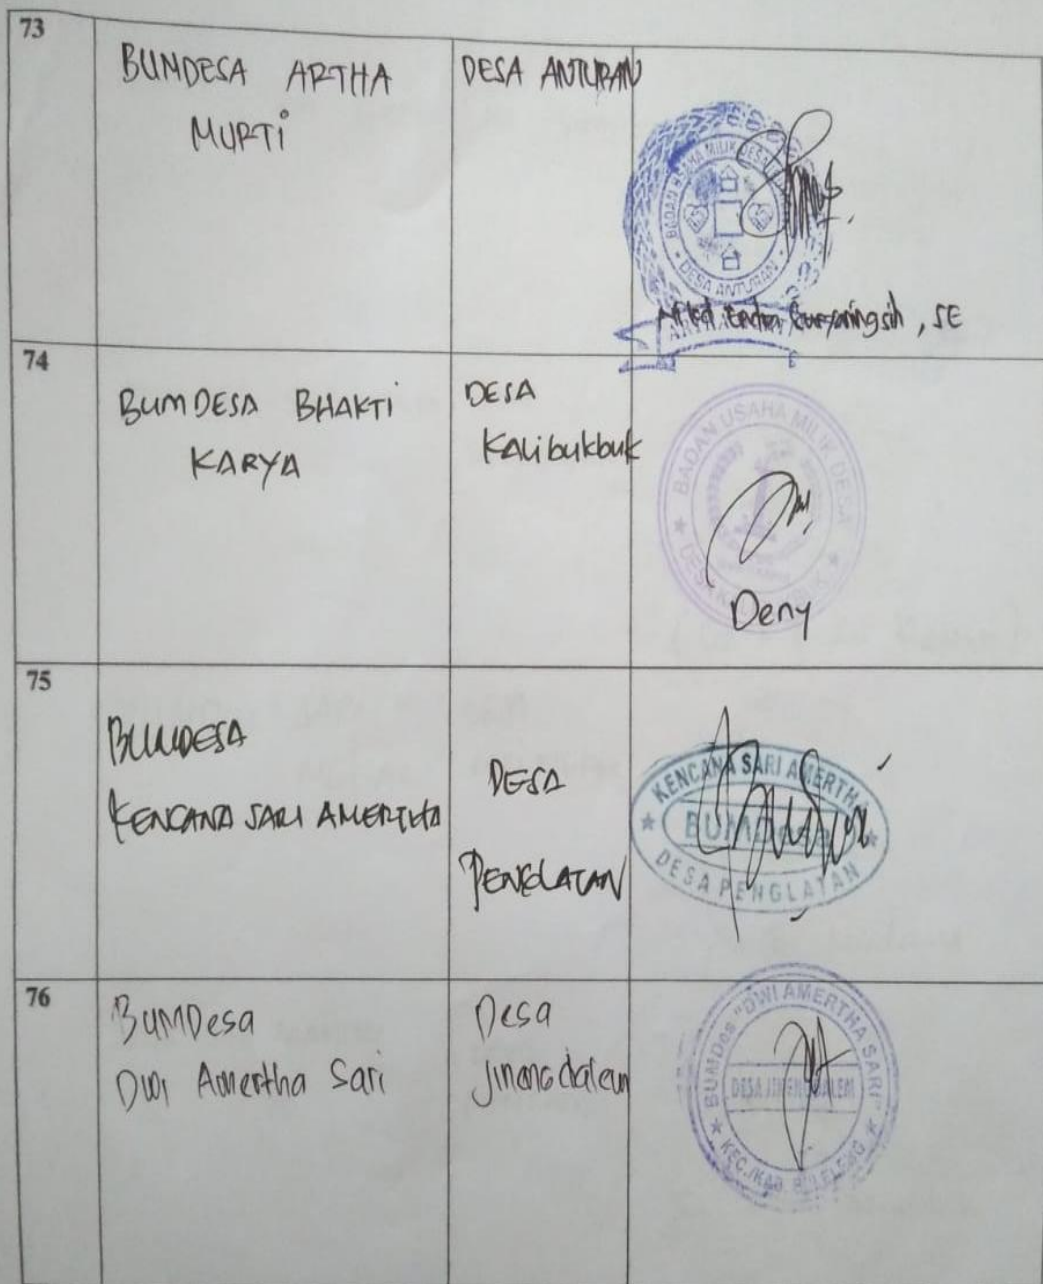 73
BUMDESA ARTHA
MURTI
DESA ANTURAN
BADAN USAHA MILIK DESA
DESA ANTURAN
, SE
74
BUMDESA BHAKTI
KARYA
DESA
Kalibukbuk
BADAN USAHA MILIK DESA
DESA
Deny
75
BUMDESA
KENCANA SARI AMERTHA
DESA
PENGLATAN
KENCANA SARI AMERTHA
BUMDesa
DESA PENGLATAN
76
BUMDesa
Dwi Amertha Sari
Desa
Jinengdalem
BUMDes "DWI AMERTHA SARI"
DESA JINENGDALEM
KEC./KAB. BULELENG